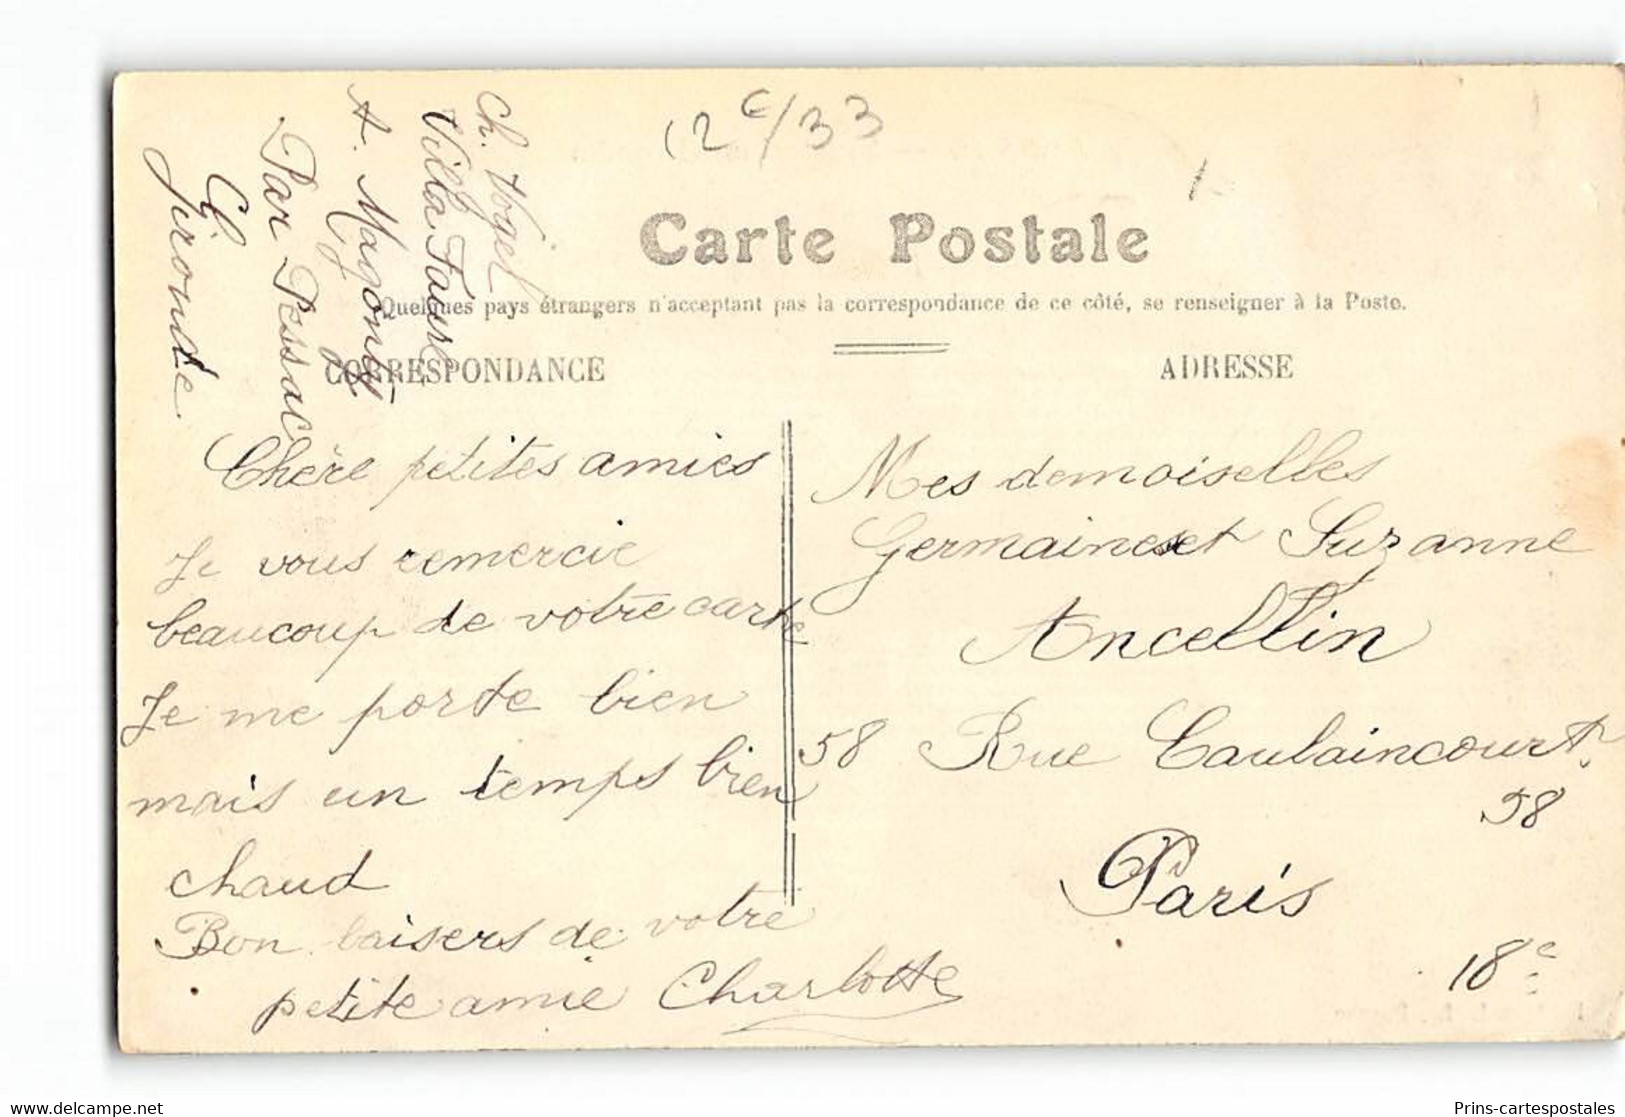 Ch. Vogel
Villa Faure
A. Magonty
Par Pessac
Gironde
12 €/33
Carte Postale
Quelques pays étrangers n'acceptant pas la correspondance de ce côté, se renseigner à la Poste.
CORRESPONDANCE
ADRESSE
Chère petites amies
Je vous remercie
beaucoup de votre carte
Je me porte bien
mais un temps bien
chaud
Bon baisers de votre
petite amie Charlotte
Mes demoiselles
Germaines et Suzanne
Ancellin
58 Rue Caulaincourt
58
Paris
18e
www.delcampe.net
Prins-cartespostales